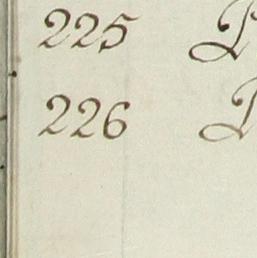 225
226